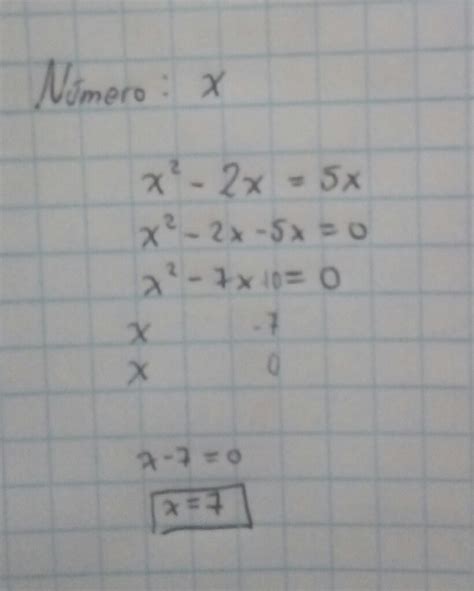 Número: x
x² - 2x = 5x
x² - 2x - 5x = 0
x² - 7x+0 = 0
x -7
x 0
x - 7 = 0
x = 7